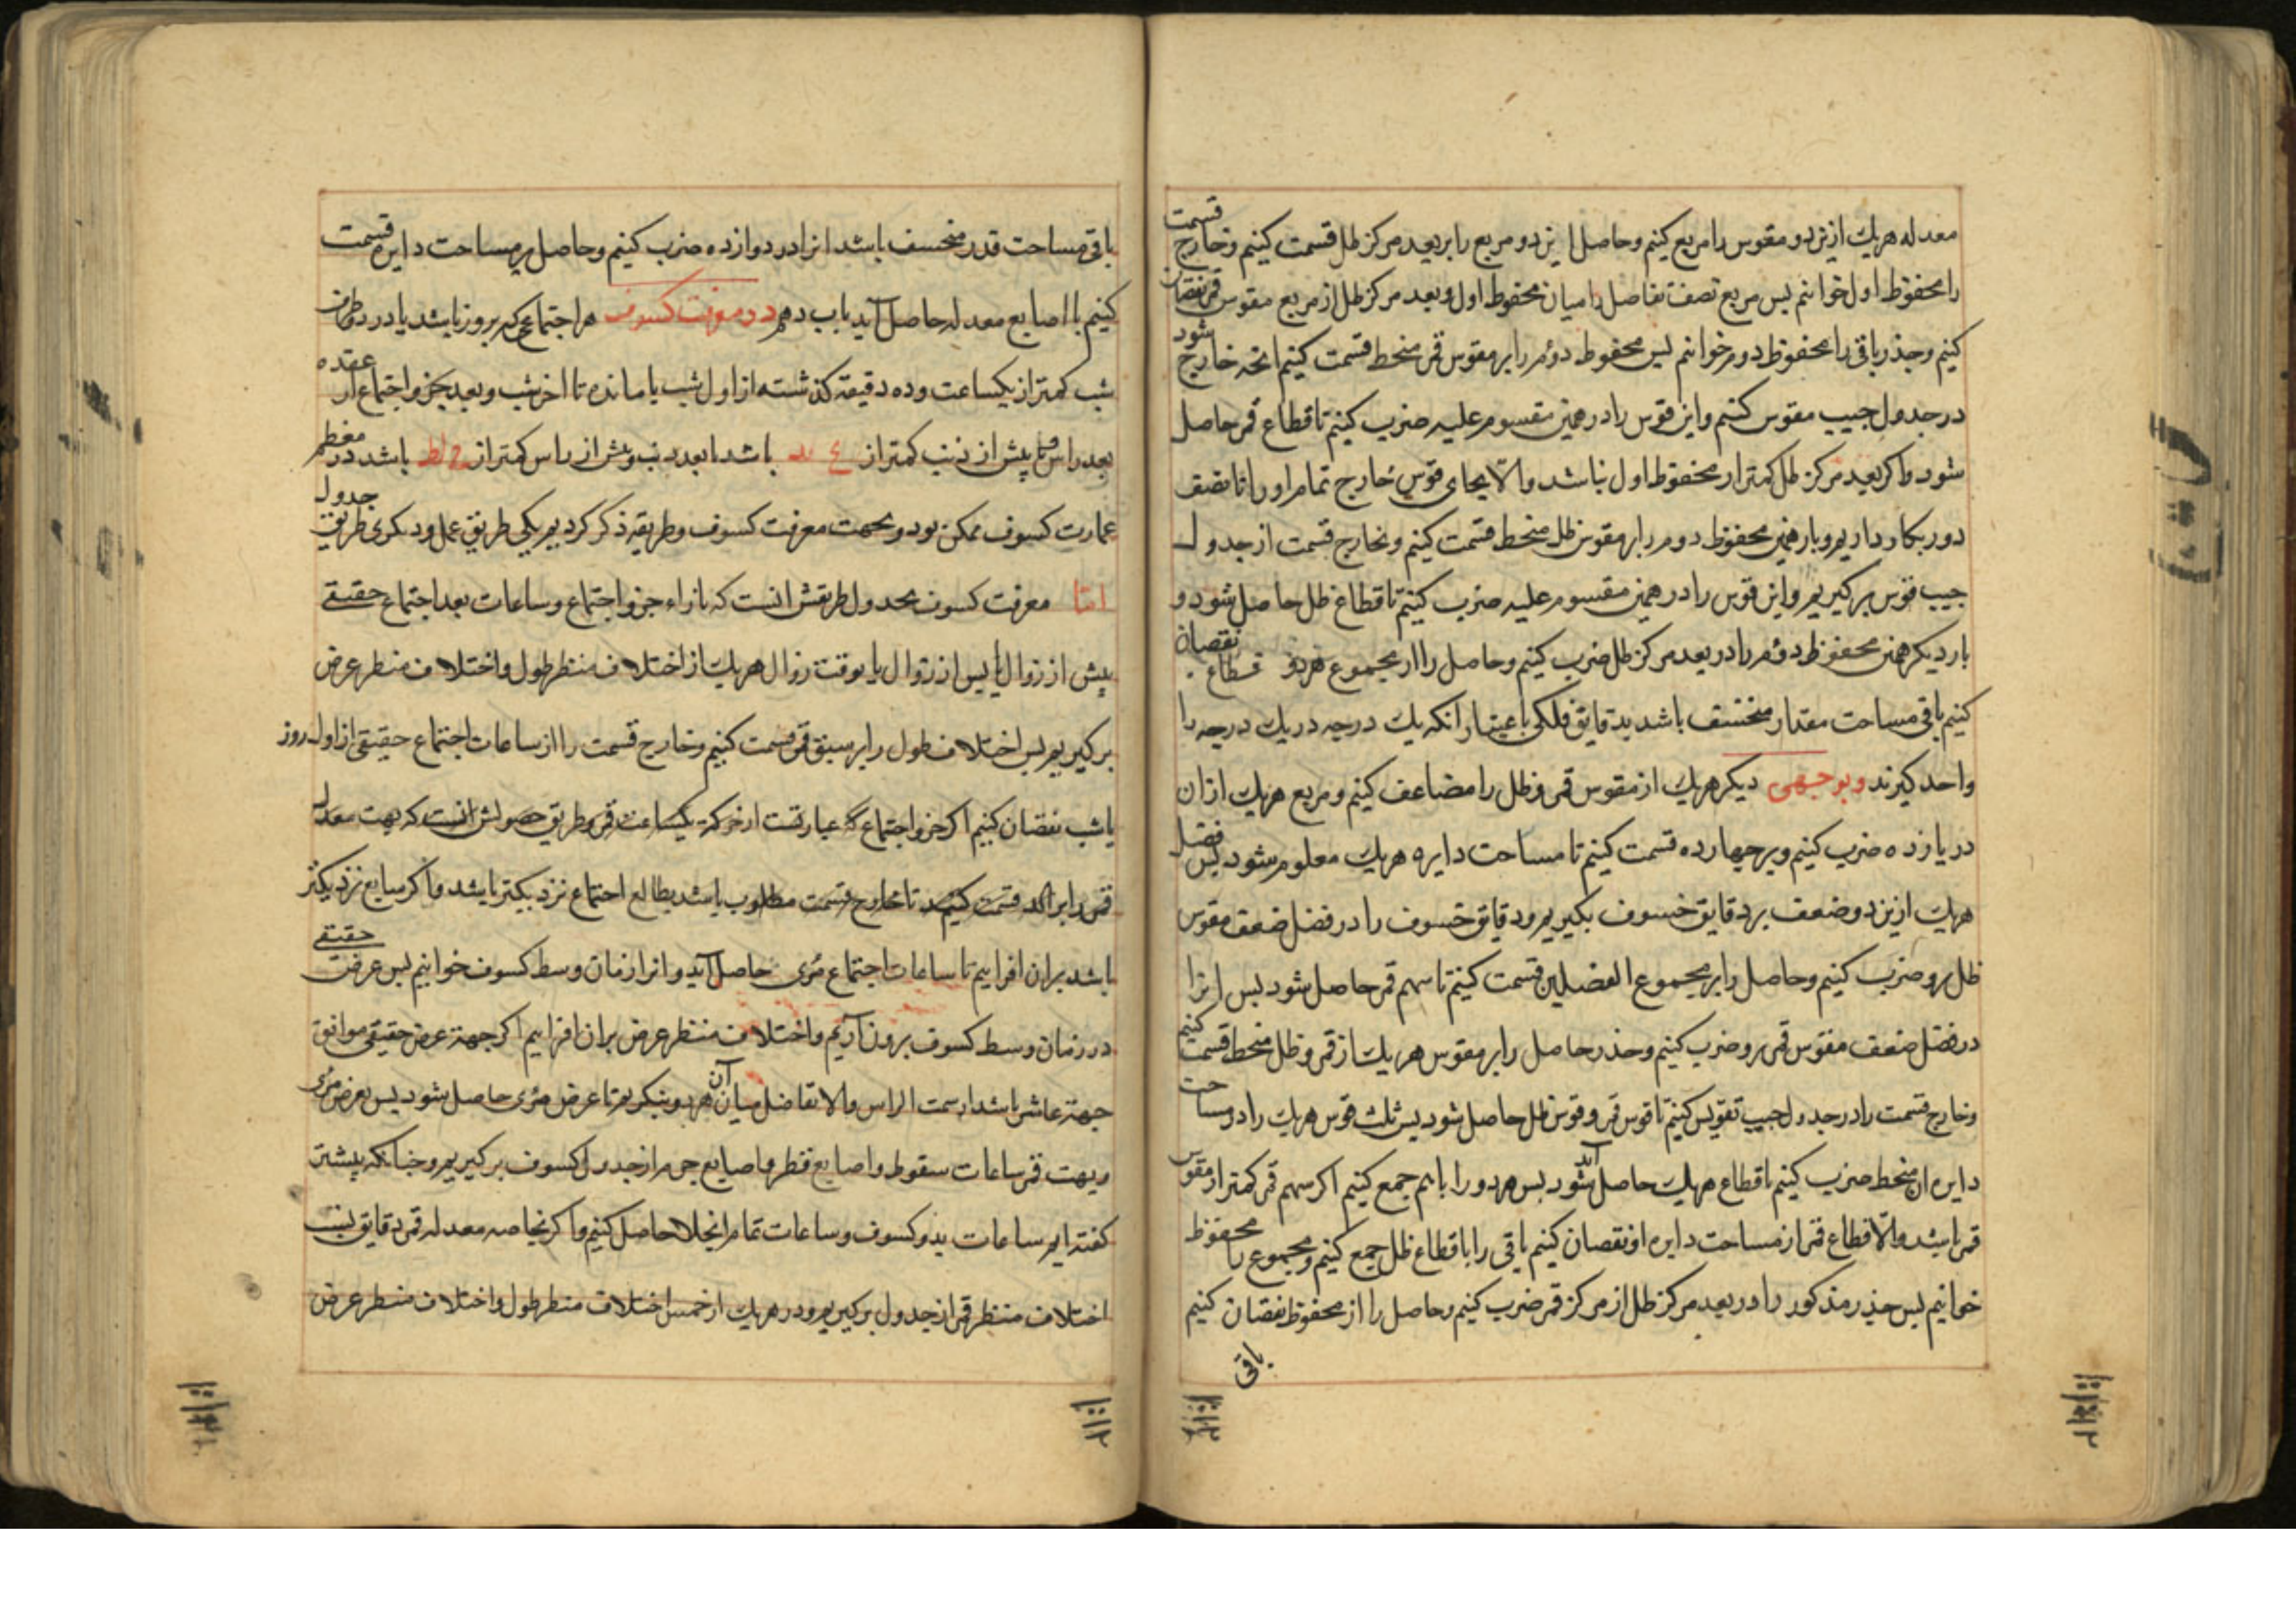 معدله هریك ازین دو مقوس را مربع کنیم وحاصل این دو مربع را بر بعد مرکز ظل قسمت کنیم وخارج قسمت
را محفوظ اول خوانیم پس مربع نصف تفاضل را میان محفوظ اول و بعد مرکز ظل از مربع مقوس قمر نقصان
کنیم وجذر باقی را محفوظ دوم خوانیم پس محفوظ دوم را بر مقوس قمر منحط قسمت کنیم انچه خارج شود
در جدول جیب مقوس کنیم واین قوس را در همین مقسوم علیه ضرب کنیم تا قطاع قمر حاصل
شود واکر بعد مرکز ظل کمتر از محفوظ اول نباشد والا بجای قوس خارج تمام او را تا نصف
دور بکار داریم وبار همین محفوظ دوم را بر مقوس ظل منحط قسمت کنیم وبخارج قسمت از جدول
جیب قوس برکیریم واین قوس را در همین مقسوم علیه ضرب کنیم تا قطاع ظل حاصل شود و
بار دیکر همین محفوظ دوم را در بعد مرکز ظل ضرب کنیم وحاصل را از مجموع هر دو قطاع نقصان
کنیم باقی مساحت مقدار منخسف باشد بدقایق فلکی باعتبار انکه یك درجه در یك درجه را
واحد کیرند وبوجهی دیکر هریك از مقوس قمر وظل را مضاعف کنیم ومربع هریك از ان
در یازده ضرب کنیم وبر چهارده قسمت کنیم تا مساحت دایره هریك معلوم شود پس فضل
هریك ازین دو ضعف بر دقایق خسوف بکیریم ودقایق خسوف را در فضل ضعف مقوس
ظل برو ضرب کنیم وحاصل را بر مجموع الفضلین قسمت کنیم تا سهم قمر حاصل شود پس انرا
در فضل ضعف مقوس قمر برو ضرب کنیم وجذر حاصل را بر مقوس هریك از قمر وظل منحط قسمت کنیم
وخارج قسمت را در جدول جیب تقویس کنیم تا قوس قمر وقوس ظل حاصل شود پس ثلث قوس هریك را در مساحت
دایره ان منحط ضرب کنیم تا قطاع هریك حاصل آید شود پس هر دو را باهم جمع کنیم اکر سهم قمر کمتر از مقوس
قمر باشد والا قطاع قمر از مساحت دایره او نقصان کنیم باقی را با قطاع ظل جمع کنیم ومجموع را محفوظ
خوانیم پس جذر مذکور را در بعد مرکز ظل از مرکز قمر ضرب کنیم وحاصل را از محفوظ نقصان کنیم
باقی
باقی مساحت قدر منخسف باشد انرا در دوازده ضرب کنیم وحاصل بر مساحت دایره قسمت
کنیم با اصابع معدله حاصل آید باب دهم در معرفت کسوف هر اجتماعی که بروز باشد یا در دو طرف
شب کمتر از یکساعت وده دقیقه کذشته از اول شب یا مانده تا اخر شب وبعد جزو اجتماع از عقده
بعد راس یا پیش از ذنب کمتر از باشد یا بعد ذنب وپیش از راس کمتر از باشد در معظم
عمارت کسوف ممکن بود وبجهت معرفت کسوف دو طریقه ذکر کردیم یکی طریق عمل ودیکری طریق جدول
اما معرفت کسوف بجدول طریقش انست که بازاء جزو اجتماع وساعات بعد اجتماع حقیقی
پیش از زوال یا پس از زوال یا بوقت زوال هریك از اختلاف منظر طول واختلاف منظر عرض
برکیریم پس اختلاف طول را بر سبق قمر قسمت کنیم وخارج قسمت را از ساعات اجتماع حقیقی از اول روز
یا شب نقصان کنیم اکر جزو اجتماع که عبارتست از حرکت یکساعت قمر وطریق حصولش انست که بهت معدل
قمر را بر قسمت کنیم تا خارج قسمت مطلوب باشد بطالع اجتماع نزدیکتر باشد واکر بسابع نزدیکتر
باشد بران افزاییم تا ساعات اجتماع مرئی حاصل آید وانرا زمان وسط کسوف خوانیم پس عرض حقیقی
در زمان وسط کسوف برون آریم واختلاف منظر عرض بران افزاییم اکر جهت عرض حقیقی موافق
جهت عاشر باشد از سمت الراس والا تفاضل میان آن هر دو بکیریم تا عرض مرئی حاصل شود پس بعرض مرئی
وبهت قمر ساعات سقوط واصابع قطر واصابع جرم از جدول کسوف برکیریم وچنانکه پیشتر
کفته ایم ساعات بدو کسوف وساعات تمام انجلا حاصل کنیم واکر بخاصه معدله قمر دقایق نسب
اختلاف منظر قمر از جدول برکیریم ودر هریك از خمس اختلاف منظر طول واختلاف منظر عرض